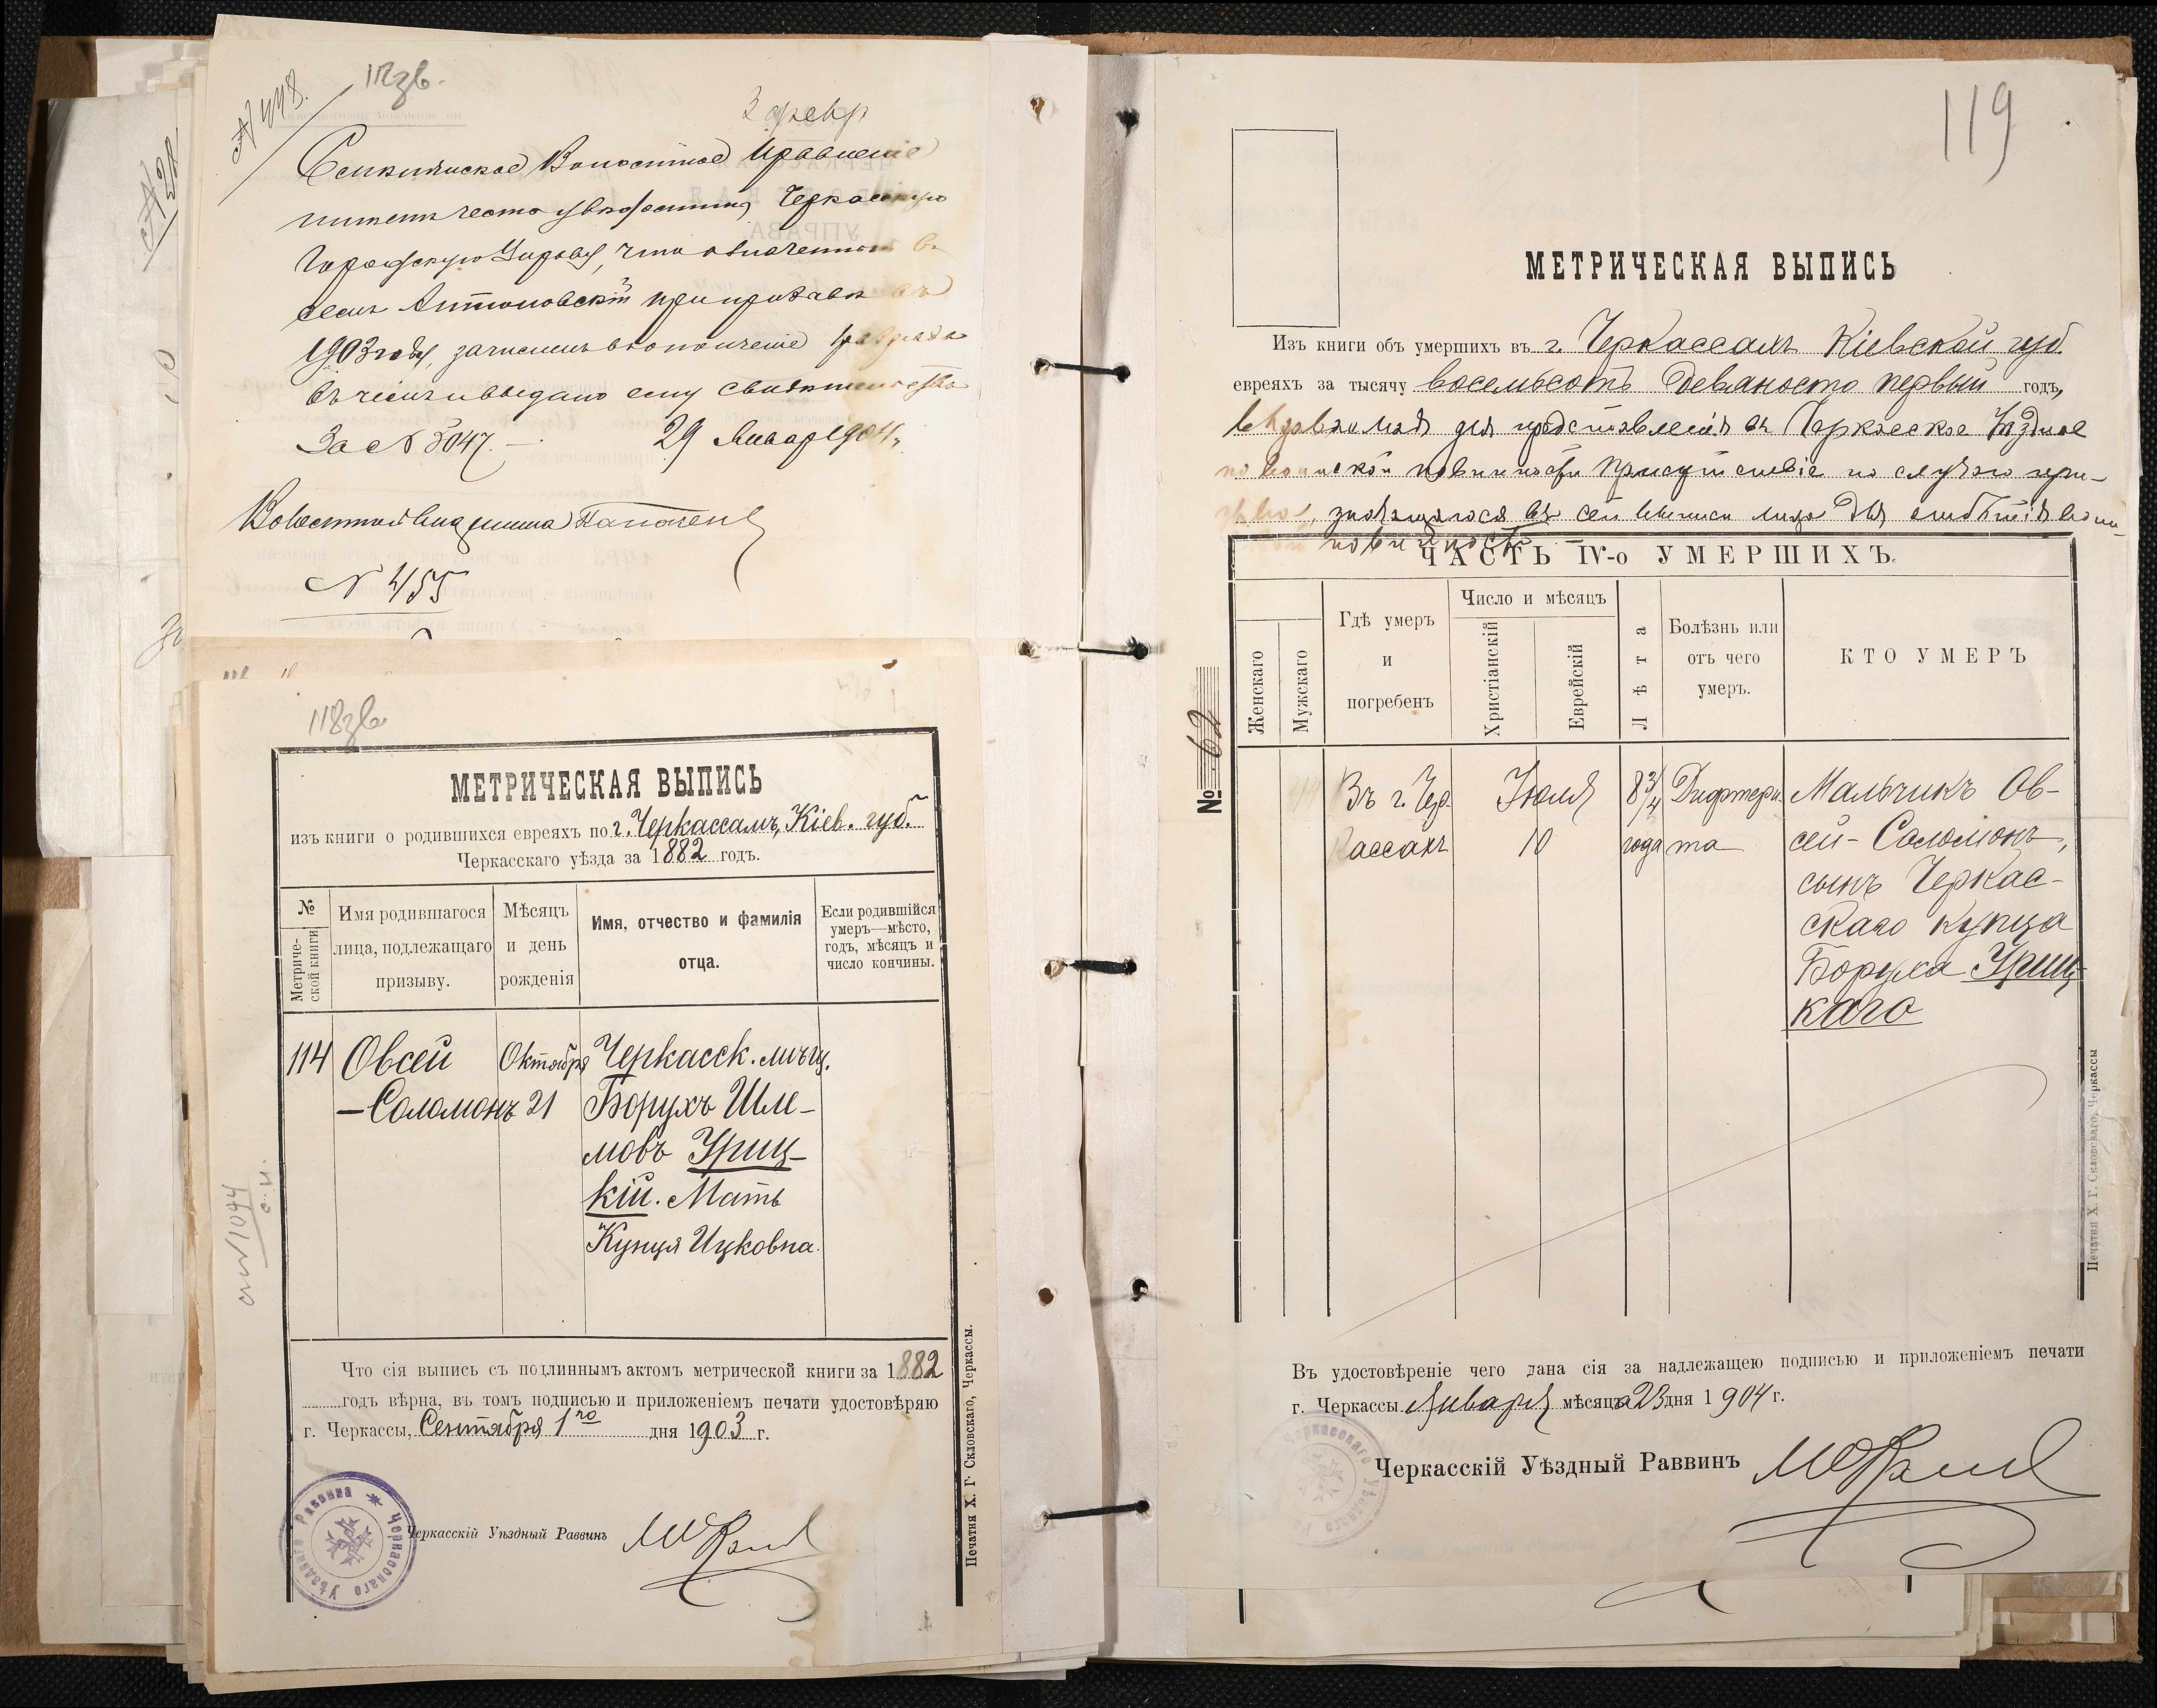 117зв.
А/448.
3 февр
Волостное Правление
имеетъ честь увѣдомить Черкасскую
Городскую Управу, что означенный въ
семъ Антоновскій при призывѣ въ
1903 году, зачисленъ въ ополченіе разряда
выдано ему свидѣтельство
За № 3047. — 29 Января 1904 г.
Волостной
№ 455
118зв.
МЕТРИЧЕСКАЯ ВЫПИСЬ
изъ книги о родившихся евреяхъ по г. Черкассамъ, Кіев. губ.
Черкасскаго уѣзда за 1882 годъ.
№ Метриче-ской книги
Имя родившагося лица, подлежащаго призыву.
Мѣсяцъ и день рожденія
Имя, отчество и фамилія отца.
Если родившійся умеръ—мѣсто, годъ, мѣсяцъ и число кончины.
114 Овсей Октября Черкасск. мѣщ.
—Соломонъ 21 Борухъ Шле-
мовъ Уриц-
кій. Мать
Кунця Ицковна.
Что сія выпись съ подлиннымъ актомъ метрической книги за 1882
годъ вѣрна, въ томъ подписью и приложеніемъ печати удостовѣряю
г. Черкассы, Сентября 1го дня 1903 г.
Черкасскій Уѣздный Раввинъ
Черкасскаго Уѣзднаго Раввина
Печатня Х. Г. Скловскаго, Черкассы.
119
МЕТРИЧЕСКАЯ ВЫПИСЬ
Изъ книги объ умершихъ въ г. Черкассахъ Кіевской губ.
евреяхъ за тысячу восемьсотъ девяносто первый годъ,
выдаваемая для представленія въ Черкасское Уѣздное
по воинской повинности Присутствіе по случаю при-
зыва, значащагося въ сей выписи лица для отбытія воин-
ской повинности
ЧАСТЬ IV-о УМЕРШИХЪ.
№ 62
Женскаго
Мужскаго
Гдѣ умеръ и погребенъ
Число и мѣсяцъ
Христіанскій
Еврейскій
Лѣта
Болѣзнь или отъ чего умеръ.
КТО УМЕРЪ
Въ г. Чер- Июля 8 3/4 Дифтери- Мальчикъ Ов-
кассахъ 10 года та сей-Соломонъ,
сынъ Черкас-
скаго купца
Боруха Уриц-
каго
Печатня Х. Г. Скловскаго, Черкассы
Въ удостовѣреніе чего дана сія за надлежащею подписью и приложеніемъ печати
г. Черкассы Января мѣсяца 23 дня 1904 г.
Черкасскій Уѣздный Раввинъ